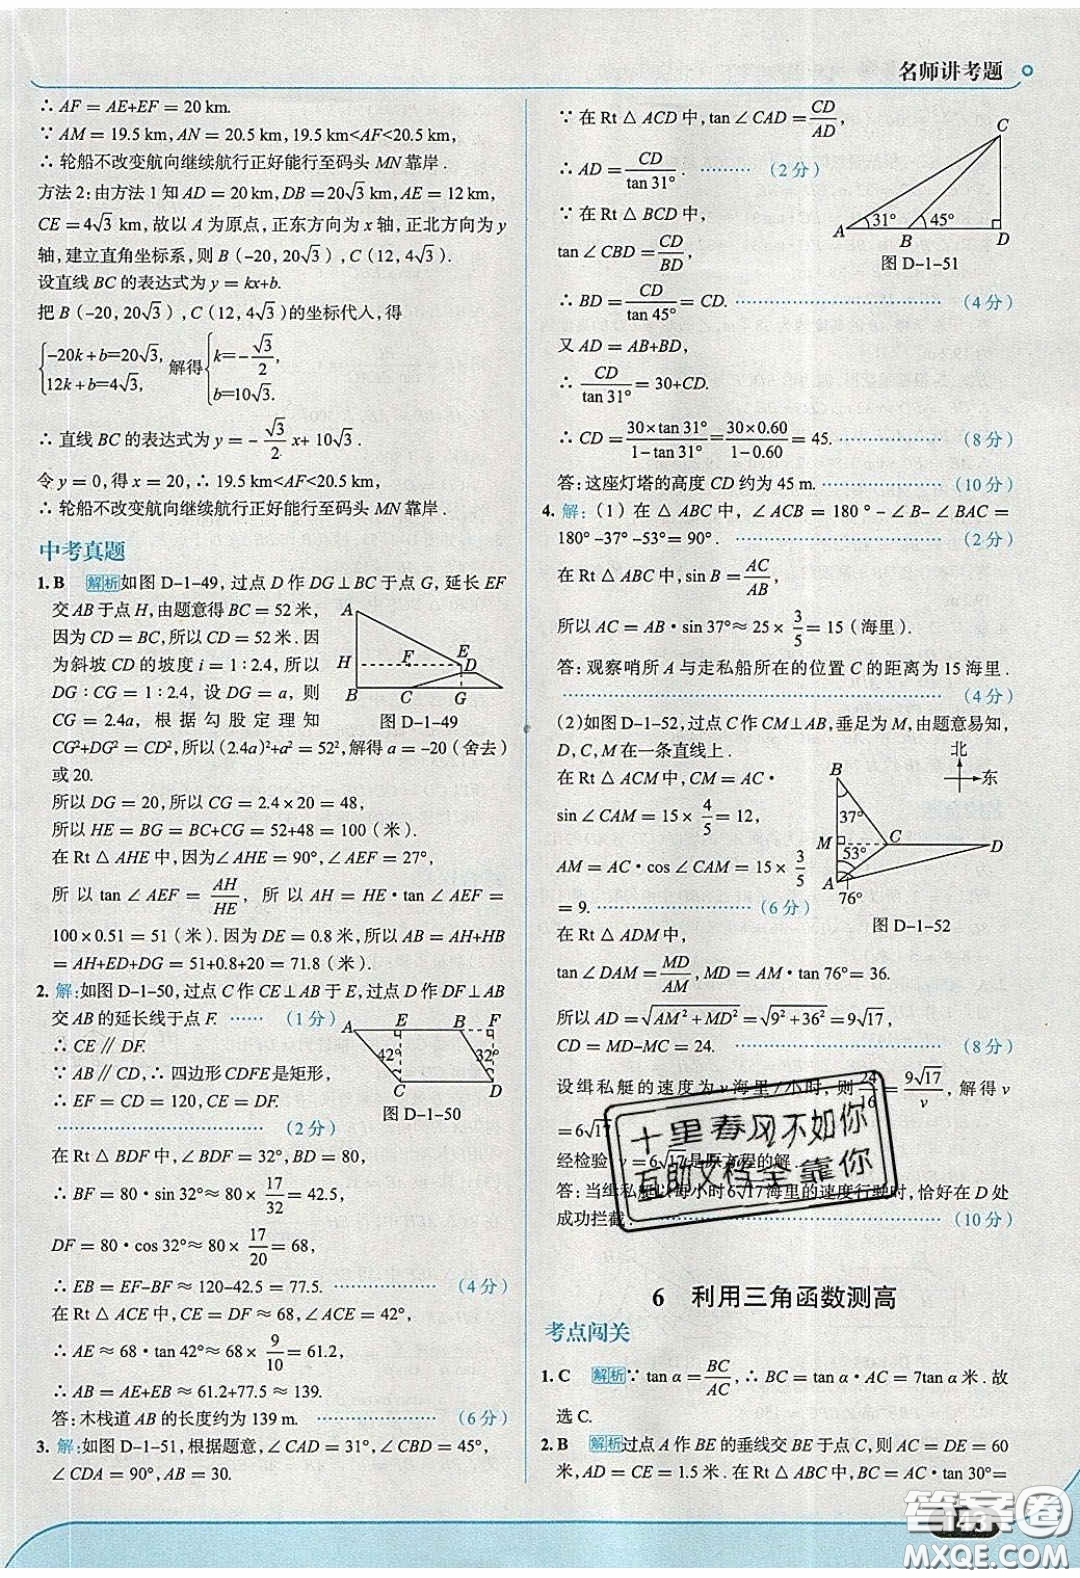 名师讲考题
∴ AF = AE+EF = 20 km.
∵ AM = 19.5 km, AN = 20.5 km, 19.5 km<AF<20.5 km,
∴ 轮船不改变航向继续航行正好能行至码头 MN 靠岸.
方法 2:由方法 1 知 AD = 20 km, DB = 20√3 km, AE = 12 km,
CE = 4√3 km, 故以 A 为原点,正东方向为 x 轴,正北方向为 y
轴,建立直角坐标系,则 B(-20, 20√3), C(12, 4√3).
设直线 BC 的表达式为 y = kx+b.
把 B(-20, 20√3), C(12, 4√3)的坐标代人,得
{-20k+b=20√3, 12k+b=4√3, 解得{k=-√3/2, b=10√3.
∴ 直线 BC 的表达式为 y = -√3/2 x+10√3.
令 y = 0,得 x = 20, ∴ 19.5 km<AF<20.5 km,
∴ 轮船不改变航向继续航行正好能行至码头 MN 靠岸.
中考真题
1. B 解析 如图 D-1-49,过点 D 作 DG⊥BC 于点 G,延长 EF
交 AB 于点 H,由题意得 BC = 52 米,
因为 CD = BC,所以 CD = 52 米. 因
为斜坡 CD 的坡度 i = 1:2.4,所以
DG:CG = 1:2.4,设 DG = a,则
CG = 2.4a,根据勾股定理知
CG²+DG² = CD²,所以(2.4a)²+a² = 52²,解得 a = -20(舍去)
或 20.
所以 DG = 20,所以 CG = 2.4×20 = 48,
所以 HE = BG = BC+CG = 52+48 = 100(米).
在 Rt△AHE 中,因为∠AHE = 90°,∠AEF = 27°,
所以 tan∠AEF = AH/HE,所以 AH = HE·tan∠AEF ≈
100×0.51 = 51(米). 因为 DE = 0.8 米,所以 AB = AH+HB
= AH+ED+DG = 51+0.8+20 = 71.8(米).
A
H
F
E
D
B
C
G
图 D-1-49
2. 解:如图 D-1-50,过点 C 作 CE⊥AB 于 E,过点 D 作 DF⊥AB
交 AB 的延长线于点 F. …… (1分)
∴ CE∥DF.
∵ AB∥CD, ∴ 四边形 CDFE 是矩形,
∴ EF = CD = 120, CE = DF.
…… (2分)
在 Rt△BDF 中,∠BDF = 32°, BD = 80,
∴ BF = 80·sin 32°≈80×17/32 = 42.5,
DF = 80·cos 32°≈80×17/20 = 68,
∴ EB = EF-BF ≈ 120-42.5 = 77.5. …… (4分)
在 Rt△ACE 中, CE = DF ≈ 68, ∠ACE = 42°,
∴ AE ≈ 68·tan 42°≈68×9/10 = 61.2,
∴ AB = AE+EB ≈ 61.2+77.5 ≈ 139.
答:木栈道 AB 的长度约为 139 m. …… (6分)
A
E
B
F
42°
32°
C
D
图 D-1-50
3. 解:如图 D-1-51,根据题意,∠CAD = 31°, ∠CBD = 45°,
∠CDA = 90°, AB = 30.
∵ 在 Rt△ACD 中, tan∠CAD = CD/AD,
∴ AD = CD/tan 31°. …… (2分)
∵ 在 Rt△BCD 中,
tan∠CBD = CD/BD,
∴ BD = CD/tan 45° = CD. …… (4分)
又 AD = AB+BD,
∴ CD/tan 31° = 30+CD.
∴ CD = 30×tan 31°/1-tan 31° = 30×0.60/1-0.60 = 45. …… (8分)
答:这座灯塔的高度 CD 约为 45 m. …… (10分)
C
31°
45°
A
B
D
图 D-1-51
4. 解:(1)在△ABC 中,∠ACB = 180°-∠B-∠BAC =
180°-37°-53°= 90°. …… (2分)
在 Rt△ABC 中, sin B = AC/AB,
所以 AC = AB·sin 37°≈25×3/5 = 15(海里).
答:观察哨所 A 与走私船所在的位置 C 的距离为 15 海里.
…… (4分)
(2)如图 D-1-52,过点 C 作 CM⊥AB,垂足为 M,由题意易知,
D, C, M 在一条直线上.
在 Rt△ACM 中, CM = AC·
sin∠CAM = 15×4/5 = 12,
AM = AC·cos∠CAM = 15×3/5
= 9. …… (6分)
在 Rt△ADM 中,
tan∠DAM = MD/AM, MD = AM·tan 76°= 36.
所以 AD = √AM²+MD² = √9²+36² = 9√17,
CD = MD-MC = 24. …… (8分)
设缉私艇的速度为 v 海里/小时,则 24/16 = 9√17/v,解得 v
= 6√17.
经检验 v = 6√17 是原方程的解.
答:当缉私艇以每小时 6√17 海里的速度行驶时,恰好在 D 处
成功拦截. …… (10分)
北
东
B
37°
M
C
D
53°
A
76°
图 D-1-52
十里春风不如你
互助文档全靠你
6 利用三角函数测高
考点闯关
1. C 解析 ∵ tan α = BC/AC, ∴ BC = tan α·AC = 7tan α 米. 故
选 C.
2. B 解析 过点 A 作 BE 的垂线交 BE 于点 C,则 AC = DE = 60
米, AD = CE = 1.5 米. 在 Rt△ABC 中, BC = AC·tan 30°=
答案圈
MXQE.COM